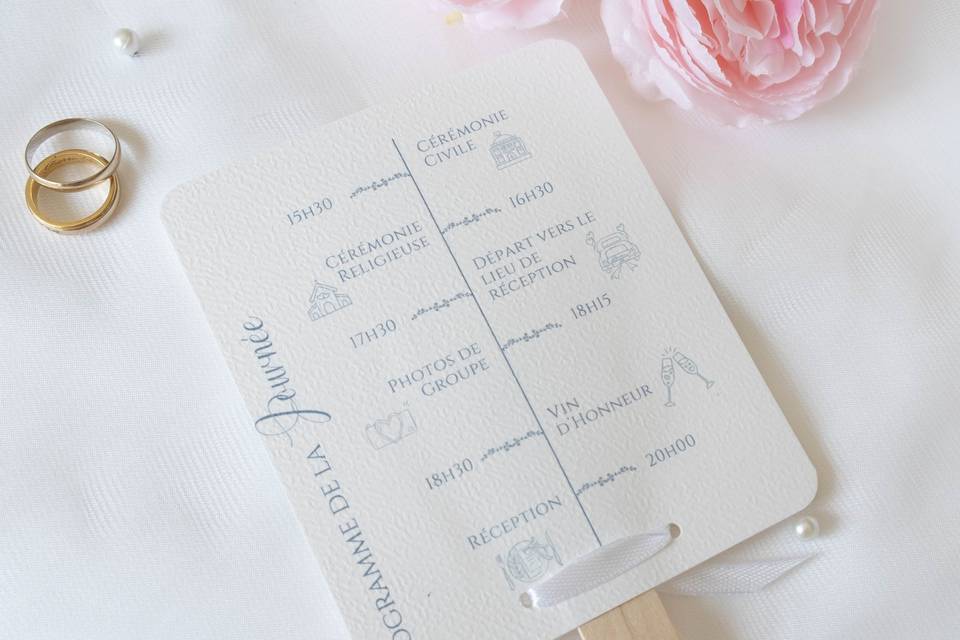 OGRAMME DE LA Journée
15H30
CÉRÉMONIE
CIVILE
16H30
CÉRÉMONIE
RELIGIEUSE
17H30
DÉPART VERS LE
LIEU DE
RÉCEPTION
18H15
PHOTOS DE
GROUPE
18H30
VIN
D'HONNEUR
20H00
RÉCEPTION